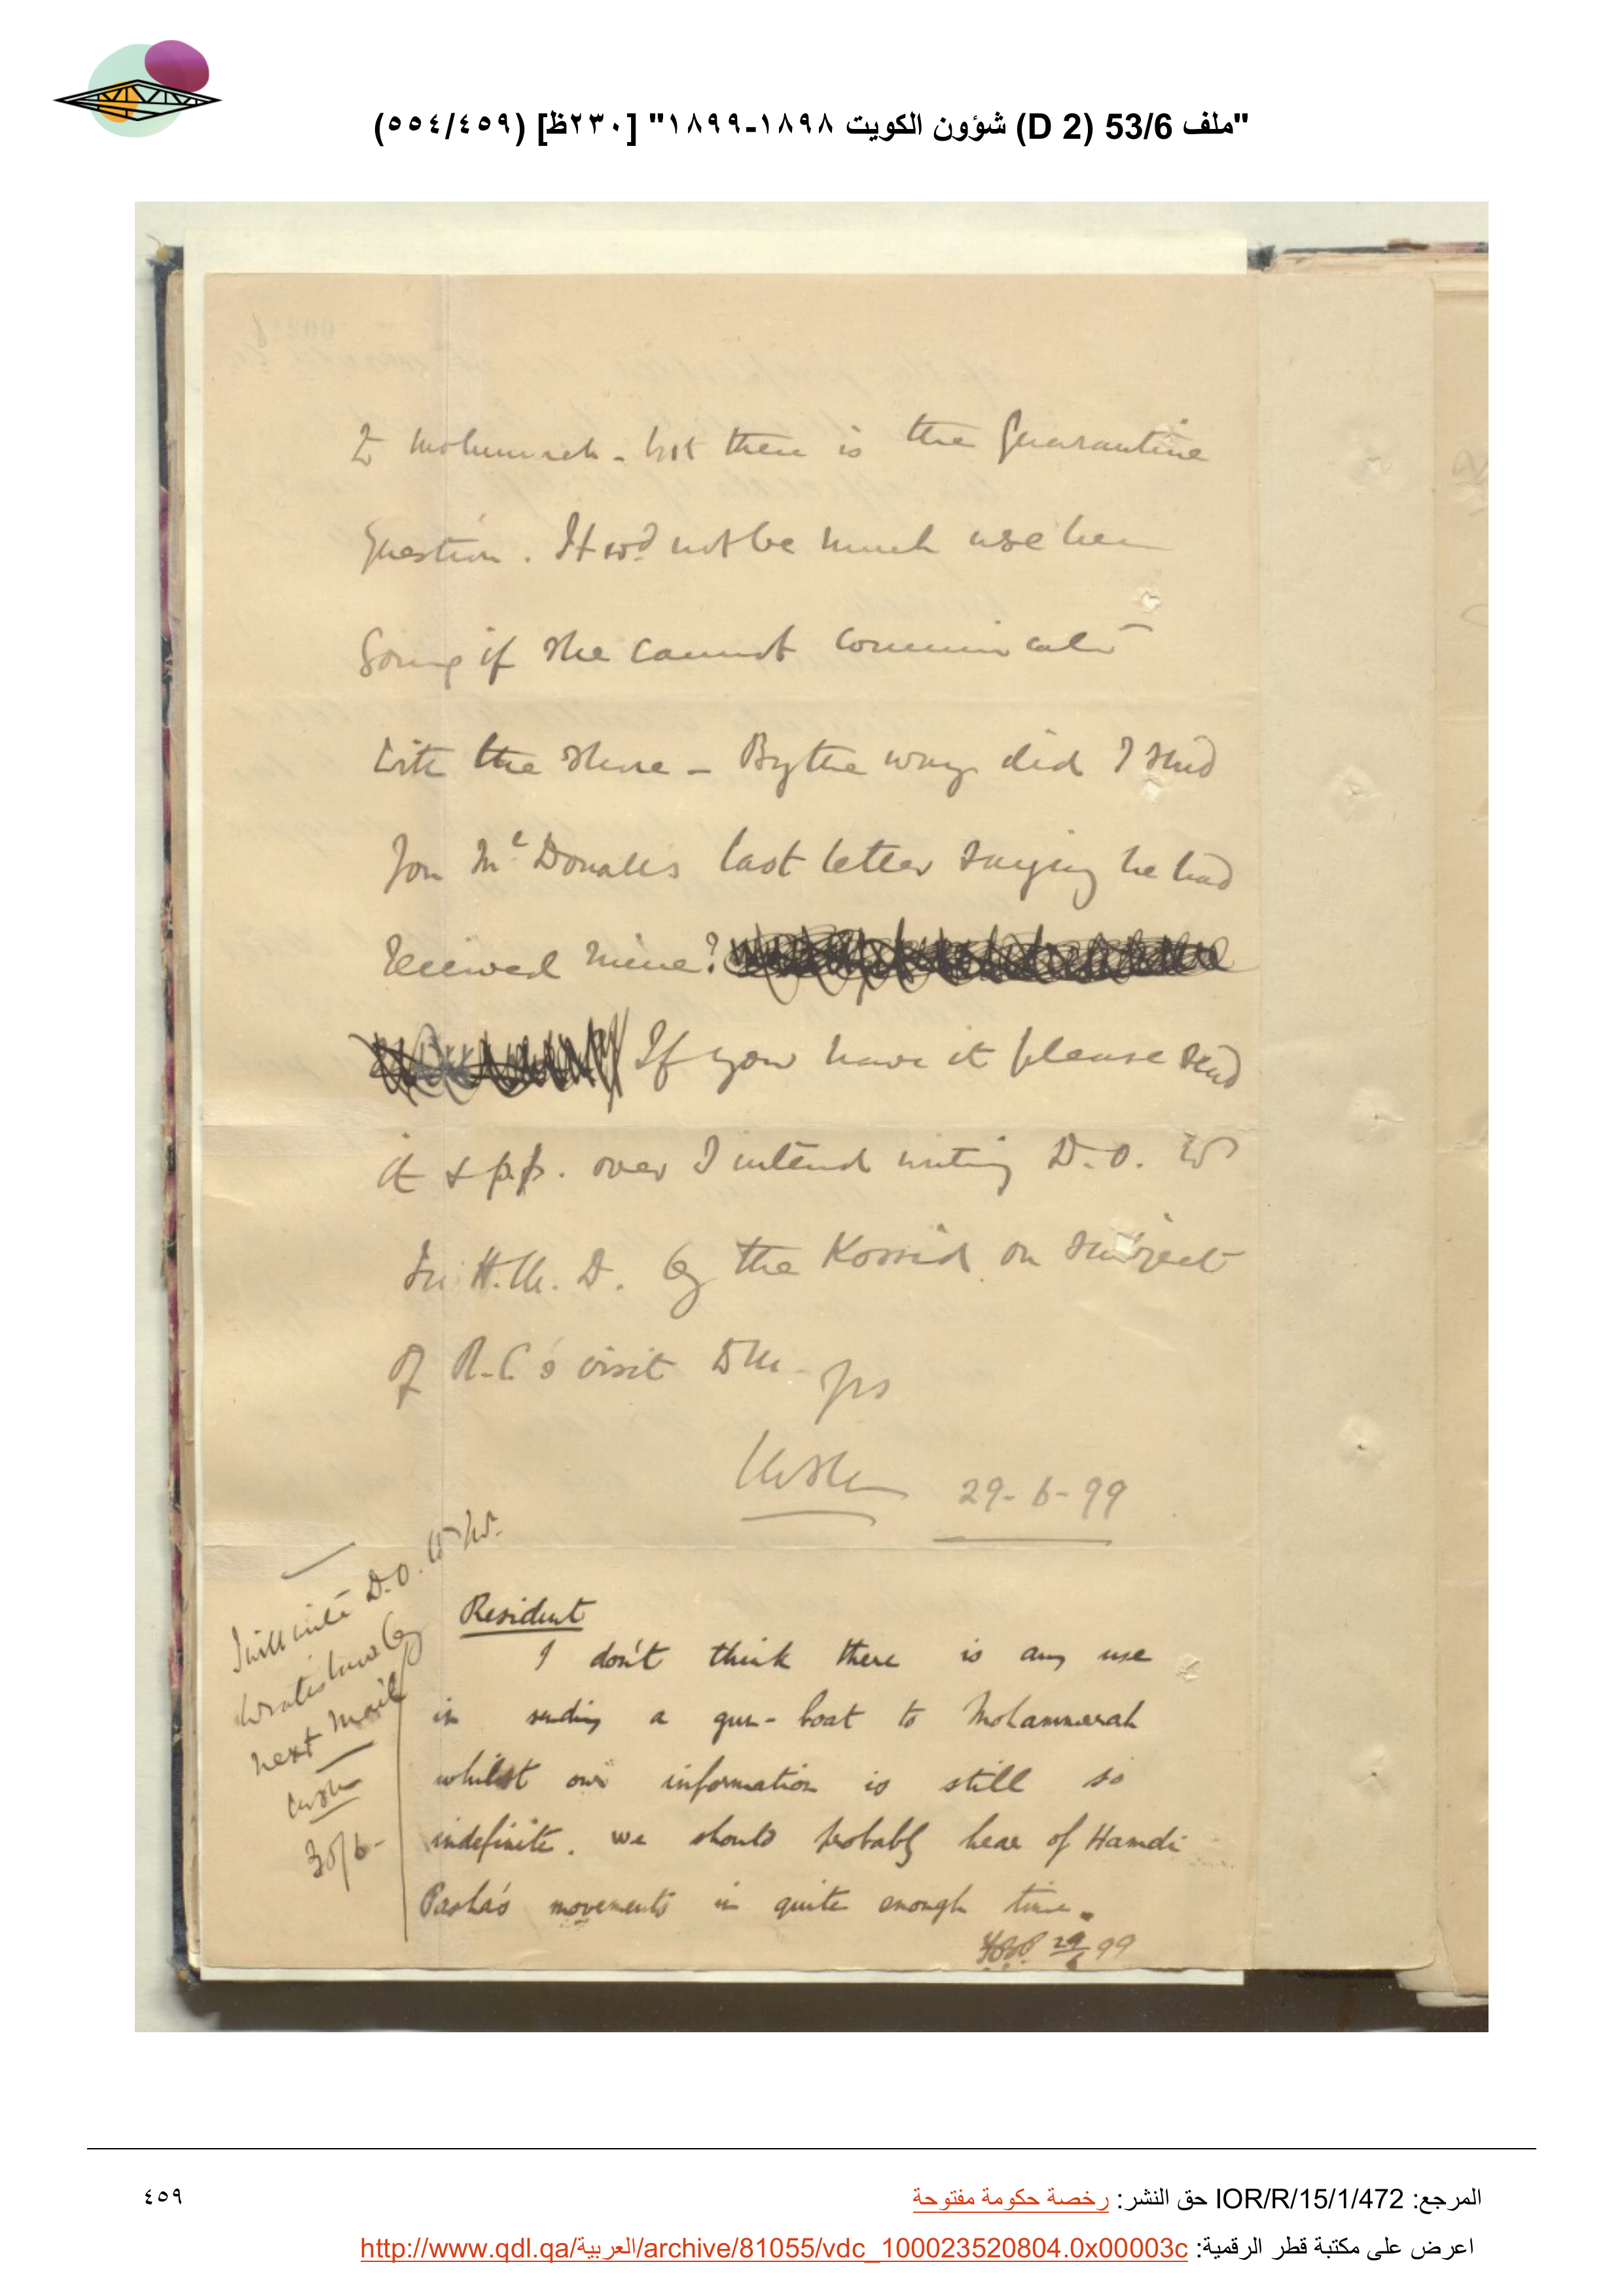 "ملف 53/6 (D 2) شؤون الكويت ١٨٩٨-١٨٩٩" [٢٣٠ظ] (٥٥٤/٤٥٩)
to Mohammerah - but there is the Quarantine
question. It wd not be much use her
going if she cannot communicate
with the shore - By the way did I send
you McDoualls last letter saying he had
received mine?
If you have it please send
it & p.p. over I intend writing D.O. to
Sir H.M.D. by the Kossid on subject
of R.C's visit
29-6-99
I will write D.O. to Mr.
Wratislaw by
next mail
30/6-
Resident
I don't think there is any use
in sending a gun-boat to Mohammerah
whilst our information is still so
indefinite. We should probably hear of Hamdi
Pasha's movements in quite enough time.
29/6 99
المرجع: IOR/R/15/1/472 حق النشر: رخصة حكومة مفتوحة
٤٥٩
اعرض على مكتبة قطر الرقمية: http://www.qdl.qa/العربية/archive/81055/vdc_100023520804.0x00003c